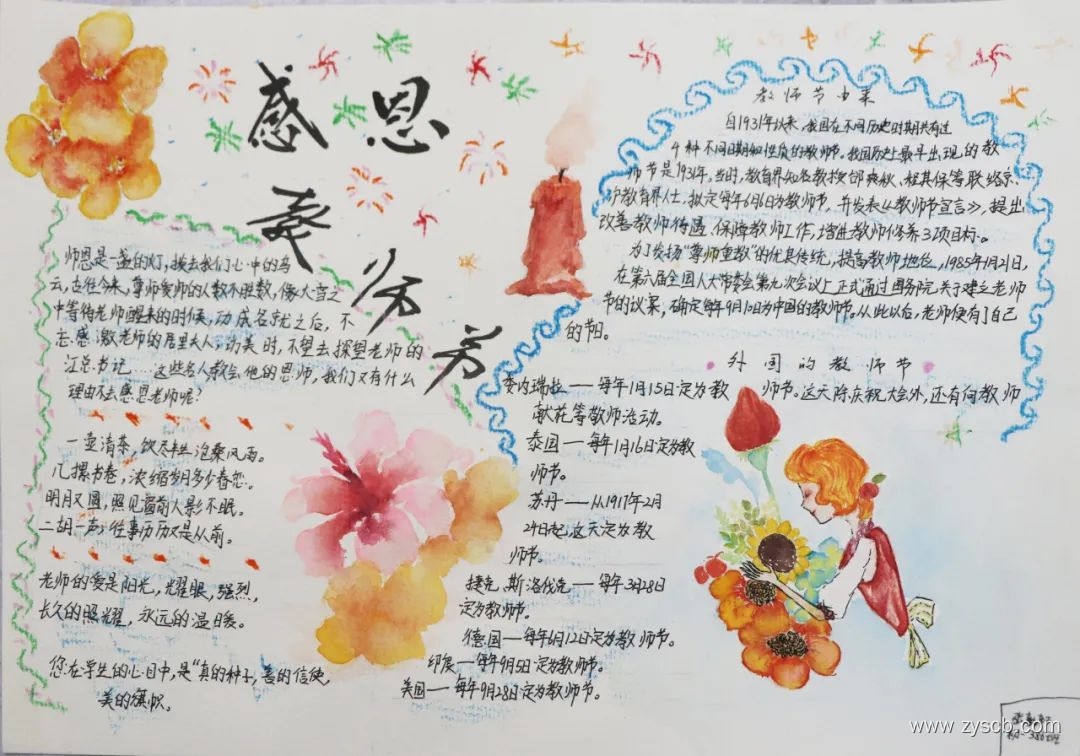 感恩
老师
教师节由来
自1931年以来,我国在不同历史时期共有过
4种不同日期和性质的教师节。我国历史上最早出现的教
师节是1931年,当时,教育界知名教授邰爽秋、程其保等联络京、
沪教育界人士,拟定每年6月6日为教师节,并发表《教师节宣言》,提出
改善教师待遇、保障教师工作,增进教师修养3项目标。
为了发扬“尊师重教”的优良传统,提高教师地位,1985年1月21日,
在第六届全国人大常委会第九次会议上正式通过国务院关于建立老师
节的议案,确定每年9月10日为中国的教师节,从此以后,老师便有了自己
的节日。
外国的教师节
委内瑞拉——每年1月15日定为教师节。这天除庆祝大会外,还有向教师
献花等敬师活动。
泰国——每年1月16日定为教
师节。
苏丹——从1917年2月
24日起,这天定为教
师节。
捷克、斯洛伐克——每年3月28日
定为教师节。
德国——每年6月12日定为教师节。
印度——每年9月5日定为教师节。
美国——每年9月28日定为教师节。
师恩是一盏的灯,拨去我们心中的乌
云,古往今来,尊师爱师的人数不胜数,像大雪之
中等待老师醒来的时候,功成名就之后,不
忘感激老师的居里夫人,访美时,不望去探望老师的
江总书记……这些名人教会他的恩师,我们又有什么
理由不去感恩老师呢?
一壶清茶,饮尽半生沧桑风雨。
几摞书卷,浓缩岁月多少眷恋。
明月又圆,照见窗前人影不眠。
二胡一声,往事历历只是从前。
老师的爱是阳光,光耀眼,强烈,
长久的照耀,永远的温暖。
您在学生的心目中,是“真的种子,善的信使,
美的旗帜。
www.zyscb.com